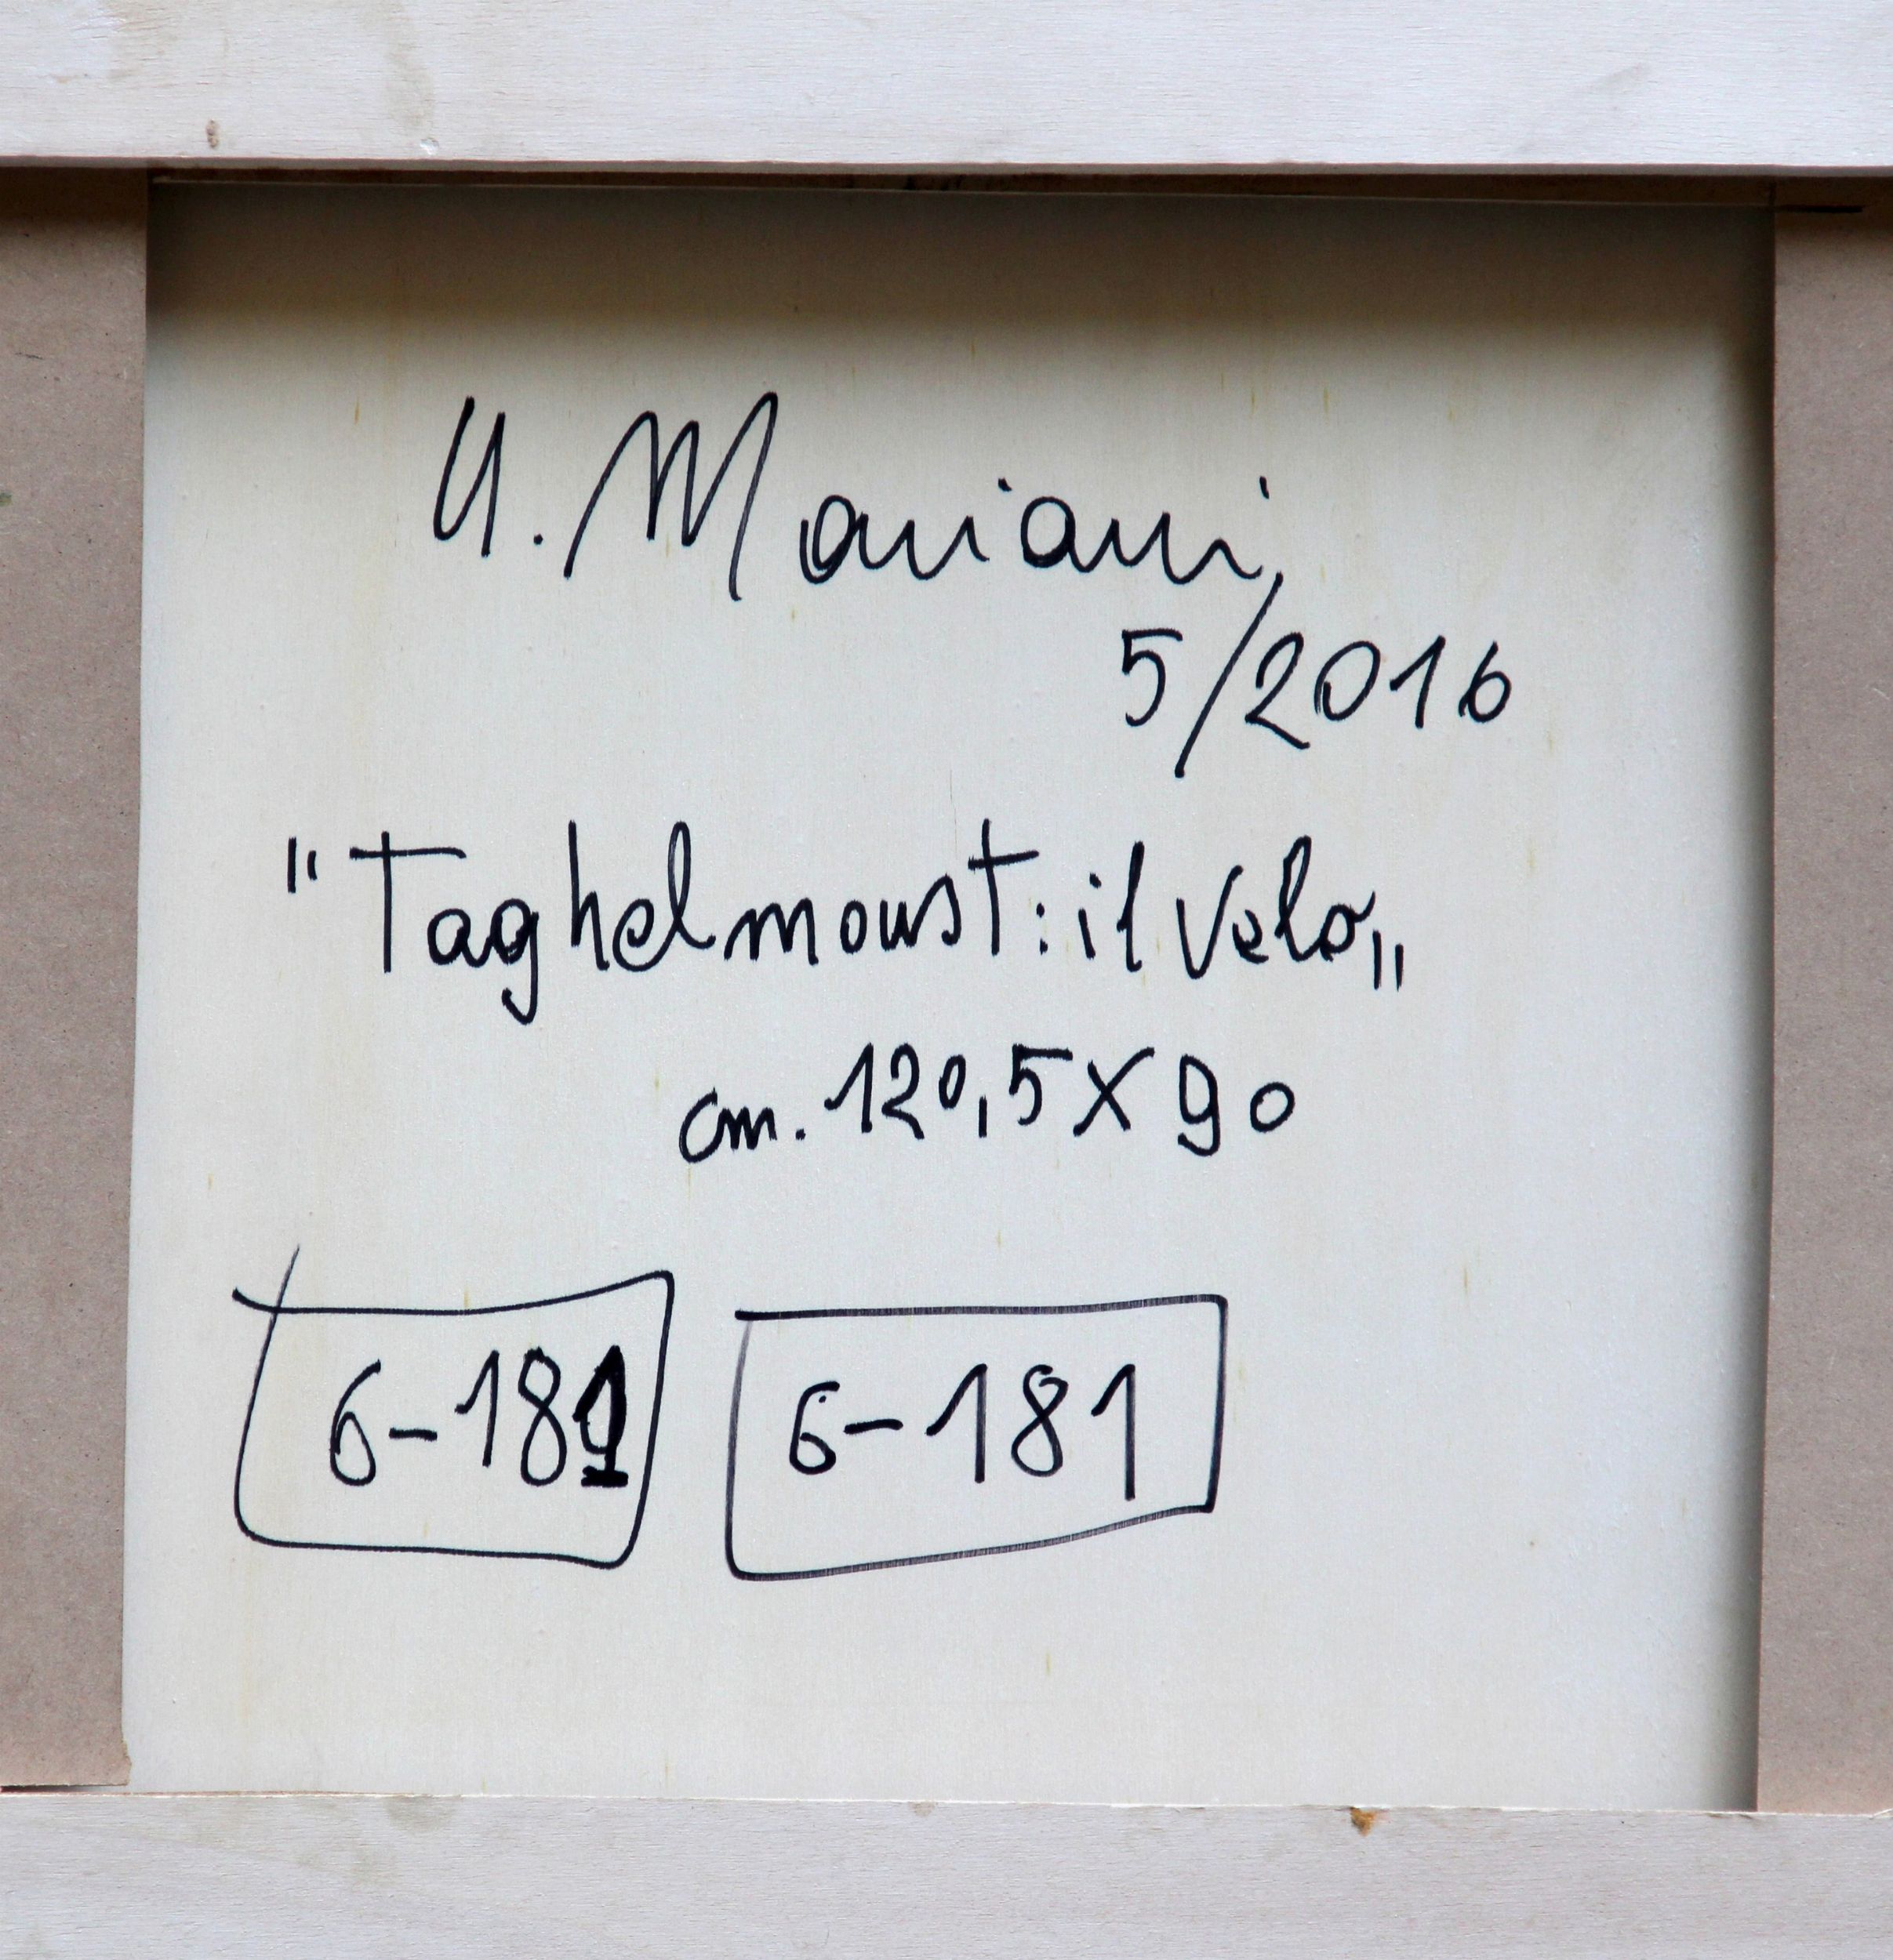 U. Mariani
5/2016
"Taghelmoust: il velo„
cm. 120,5 X 90
6-181 6-181